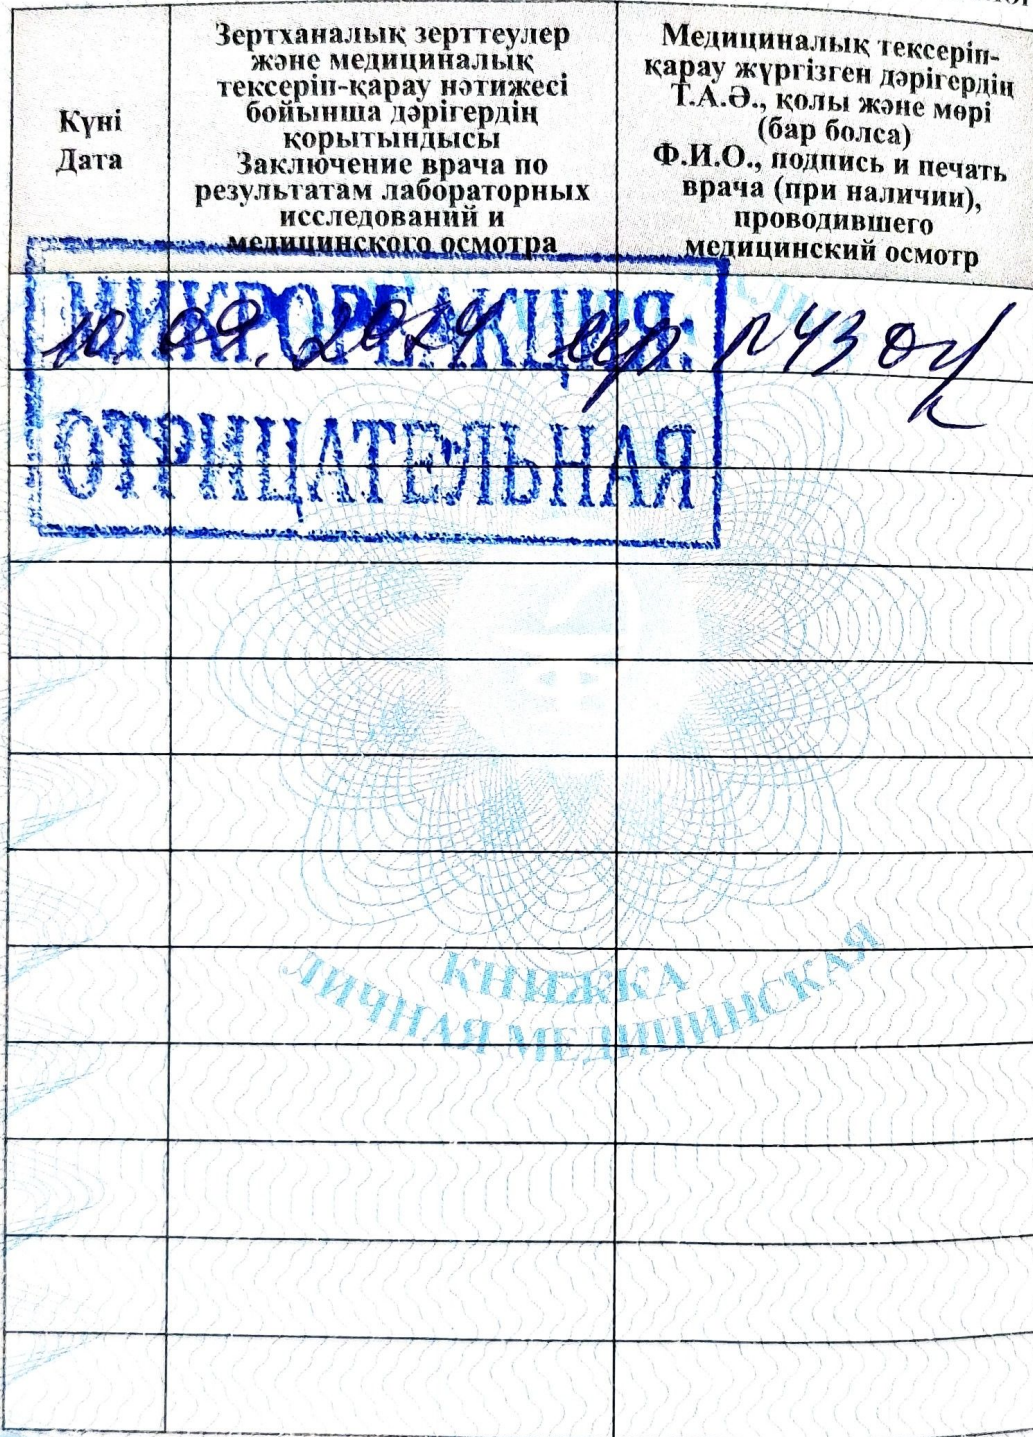 Күні
Дата
Зертханалық зерттеулер
және медициналық
тексеріп-қарау нәтижесі
бойынша дәрігердің
қорытындысы
Заключение врача по
результатам лабораторных
исследований и
медицинского осмотра
Медициналық тексеріп-
қарау жүргізген дәрігердің
Т.А.Ә., қолы және мөрі
(бар болса)
Ф.И.О., подпись и печать
врача (при наличии),
проводившего
медицинский осмотр
МИКРОРЕАКЦИЯ:
10.09.2024
ОТРИЦАТЕЛЬНАЯ
КНИЖКА
ЛИЧНАЯ МЕДИЦИНСКАЯ